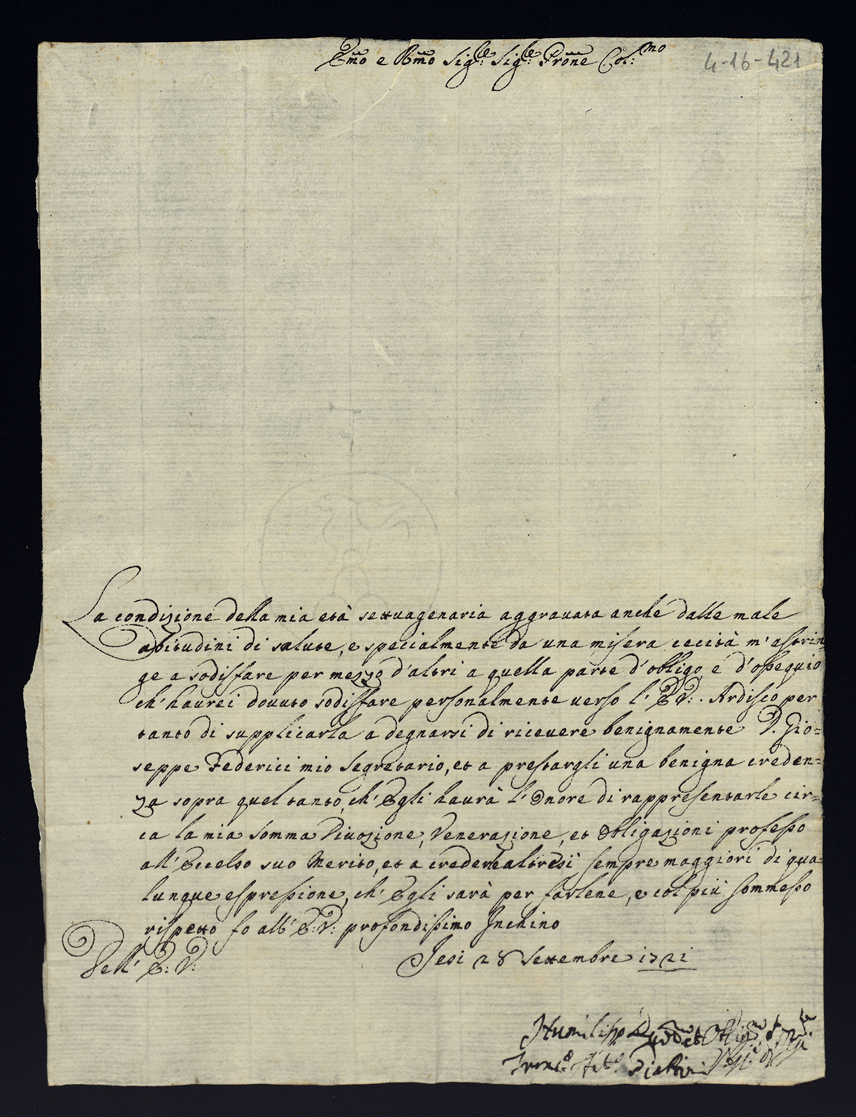 Em̃o e Rm̃o Sig.re Sig.re Prõne Col.mo
4-16-421
La condizione della mia età settuagenaria aggravata anche dalle male
abitudini di salute, e specialmente da una misera cecità m'astrin=
ge a sodisfare per mezzo d'altri a quella parte d'obligo e d'ossequio
ch'haurei dovuto sodisfare personalmente verso l'E.V:. Ardisco per
tanto di supplicarla a degnarsi di ricevere benignamente D. Gio=
seppe Federici mio Segretario, et a prestargli una benigna creden=
za sopra quel tanto, ch'Egli haurà l'Onore di rappresentarle cir=
ca la mia somma Divozione, Venerazione, et obligazioni professo
all'Eccelso suo Merito, et a credere altresì sempre maggiori di qua=
lunque espressione, ch'Egli sarà per farlene, e col più sommesso
rispetto fo all'E: V: profondissimo Inchino
Dell'E: V:
Jesi 28 Settembre 1721
Humiliss